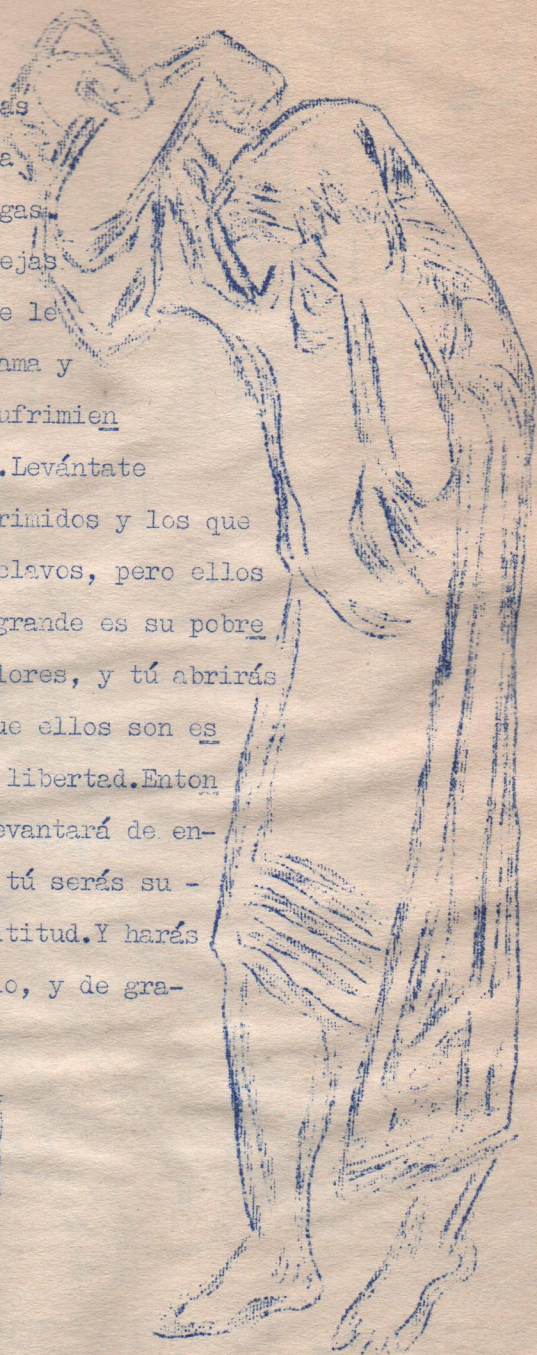 as
a
gas
ejas
e le
ama y
ufrimien
.Levántate
rimidos y los que
clavos, pero ellos
grande es su pobre
lores, y tú abrirás
ue ellos son es
libertad.Enton
evantará de en-
tú serás su -
titud.Y harás
o, y de gra-